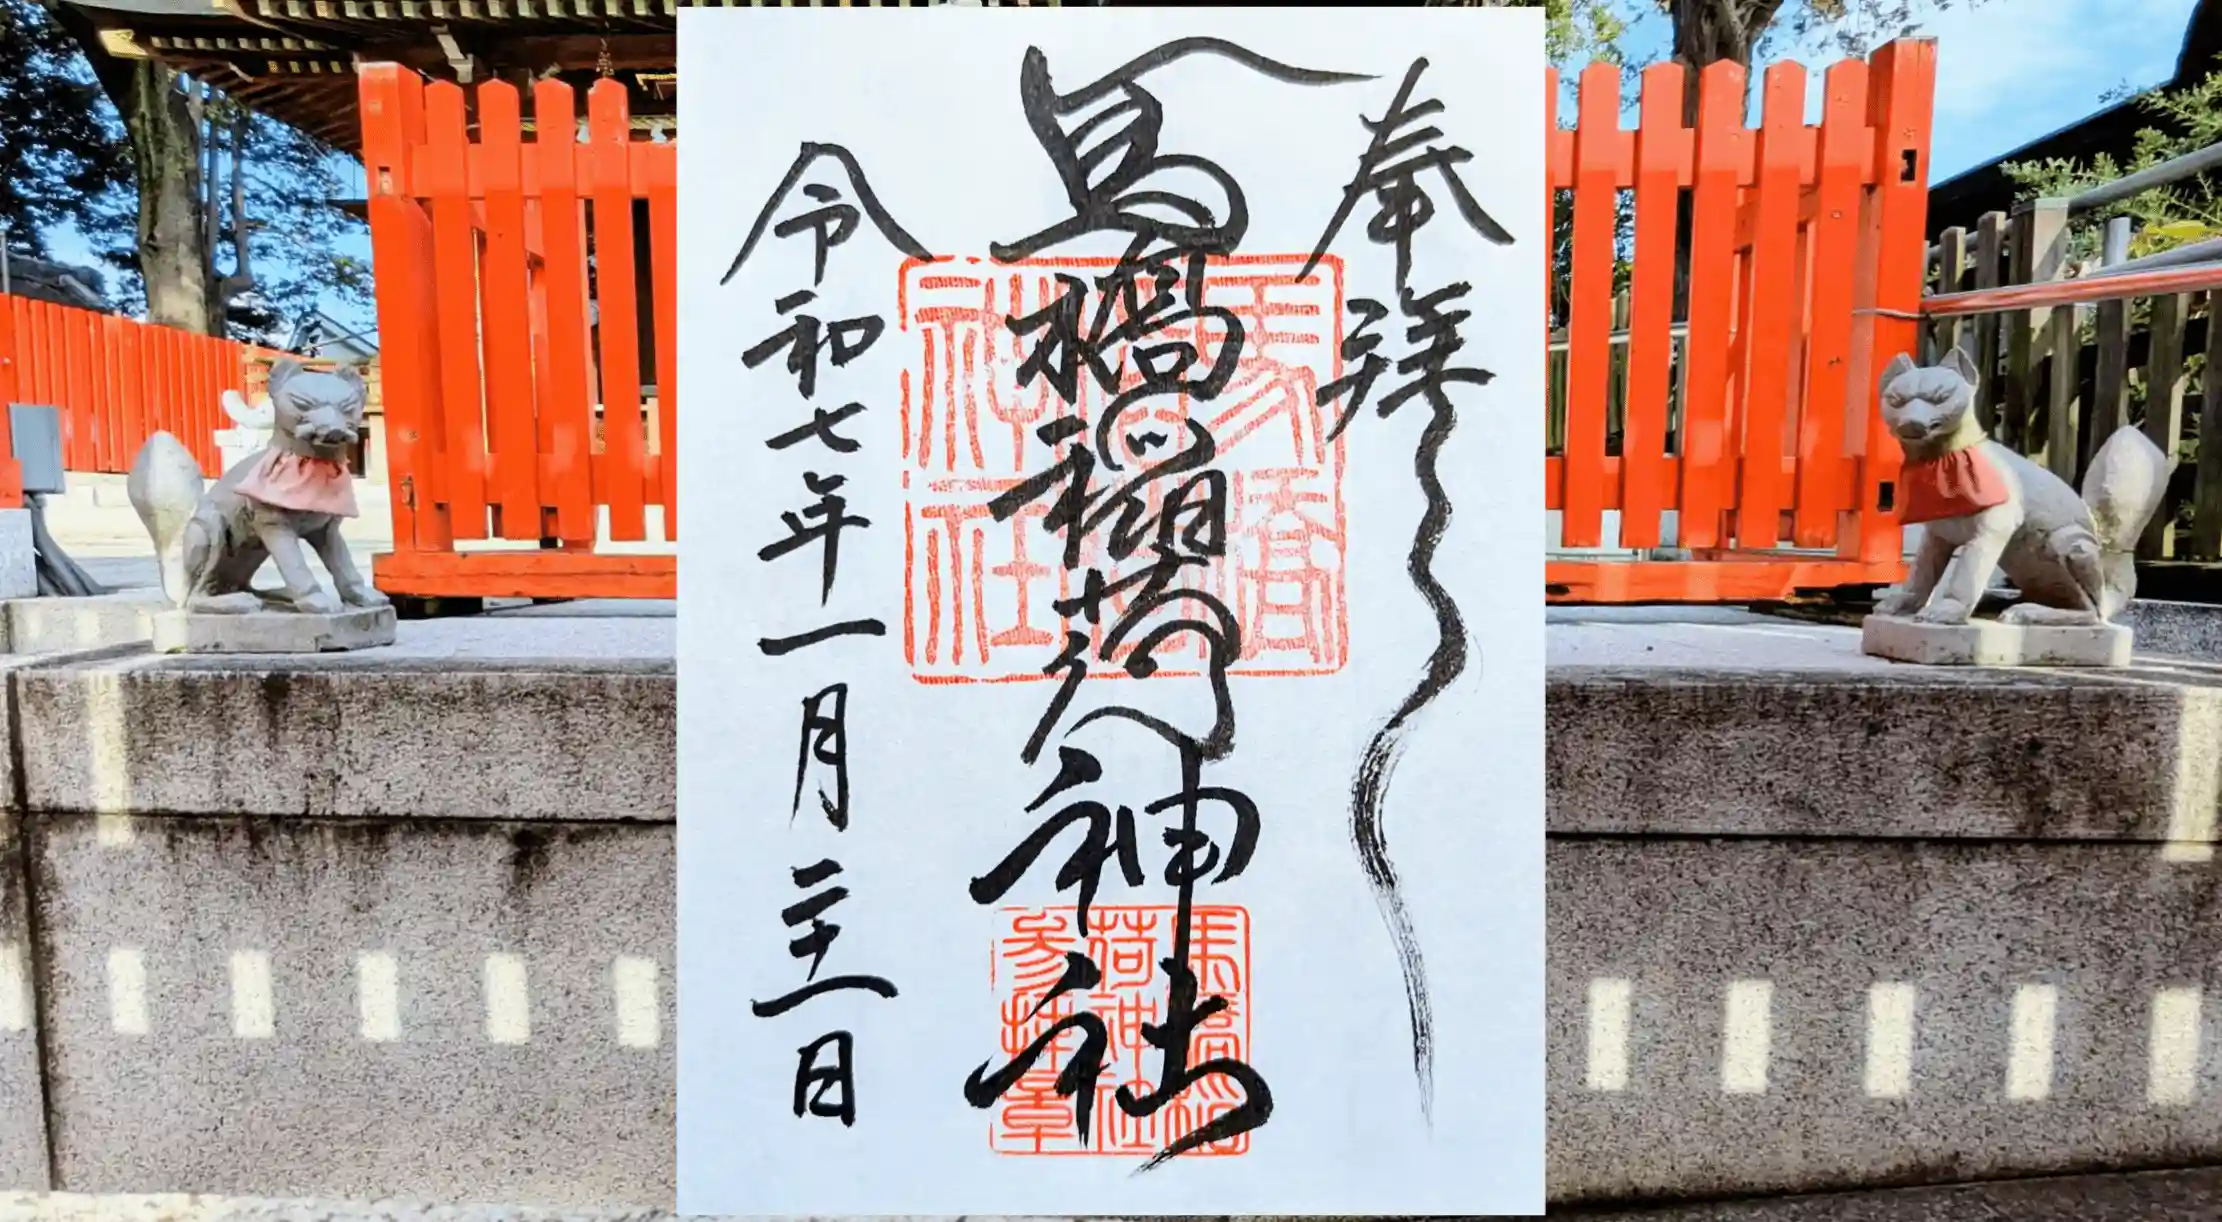 奉拝
馬橋稲荷神社
令和七年一月二十一日
馬橋
稲荷
神社
馬橋稲
荷神社
参拝章